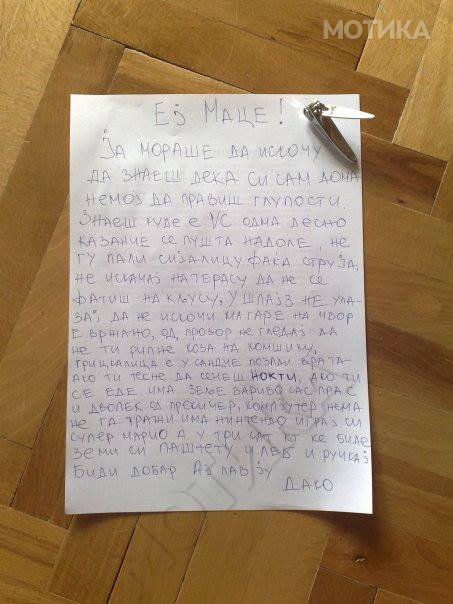 МОТИКА
Еј Маце!
Ја мораше да искочу
да знаеш дека си сам дома
немој да правиш глупости.
Знаеш куде е VC одма десно
казанче се пушта надоле, не
гу пали сијалицу фаќа струја,
не искачај на терасу да не се
фатиш на кљусу, у шпајз не ула-
зај да не искочи магаре на чвор
е вржано, од прозор не гледај да
не ти рипне коза на комшику,
грицкалица е у сандче позади врата
ако ти текне да сечеш нокти, ако ти
се еде има зеље вариво сас праѕ
и двопек од пресичер, компзутер нема
не га тражи има нинтендо играј си
супер марио а у три сат кт ќе биде
земи си паштету и леб и ручкај
Биди добар Ај лав ју
Дако